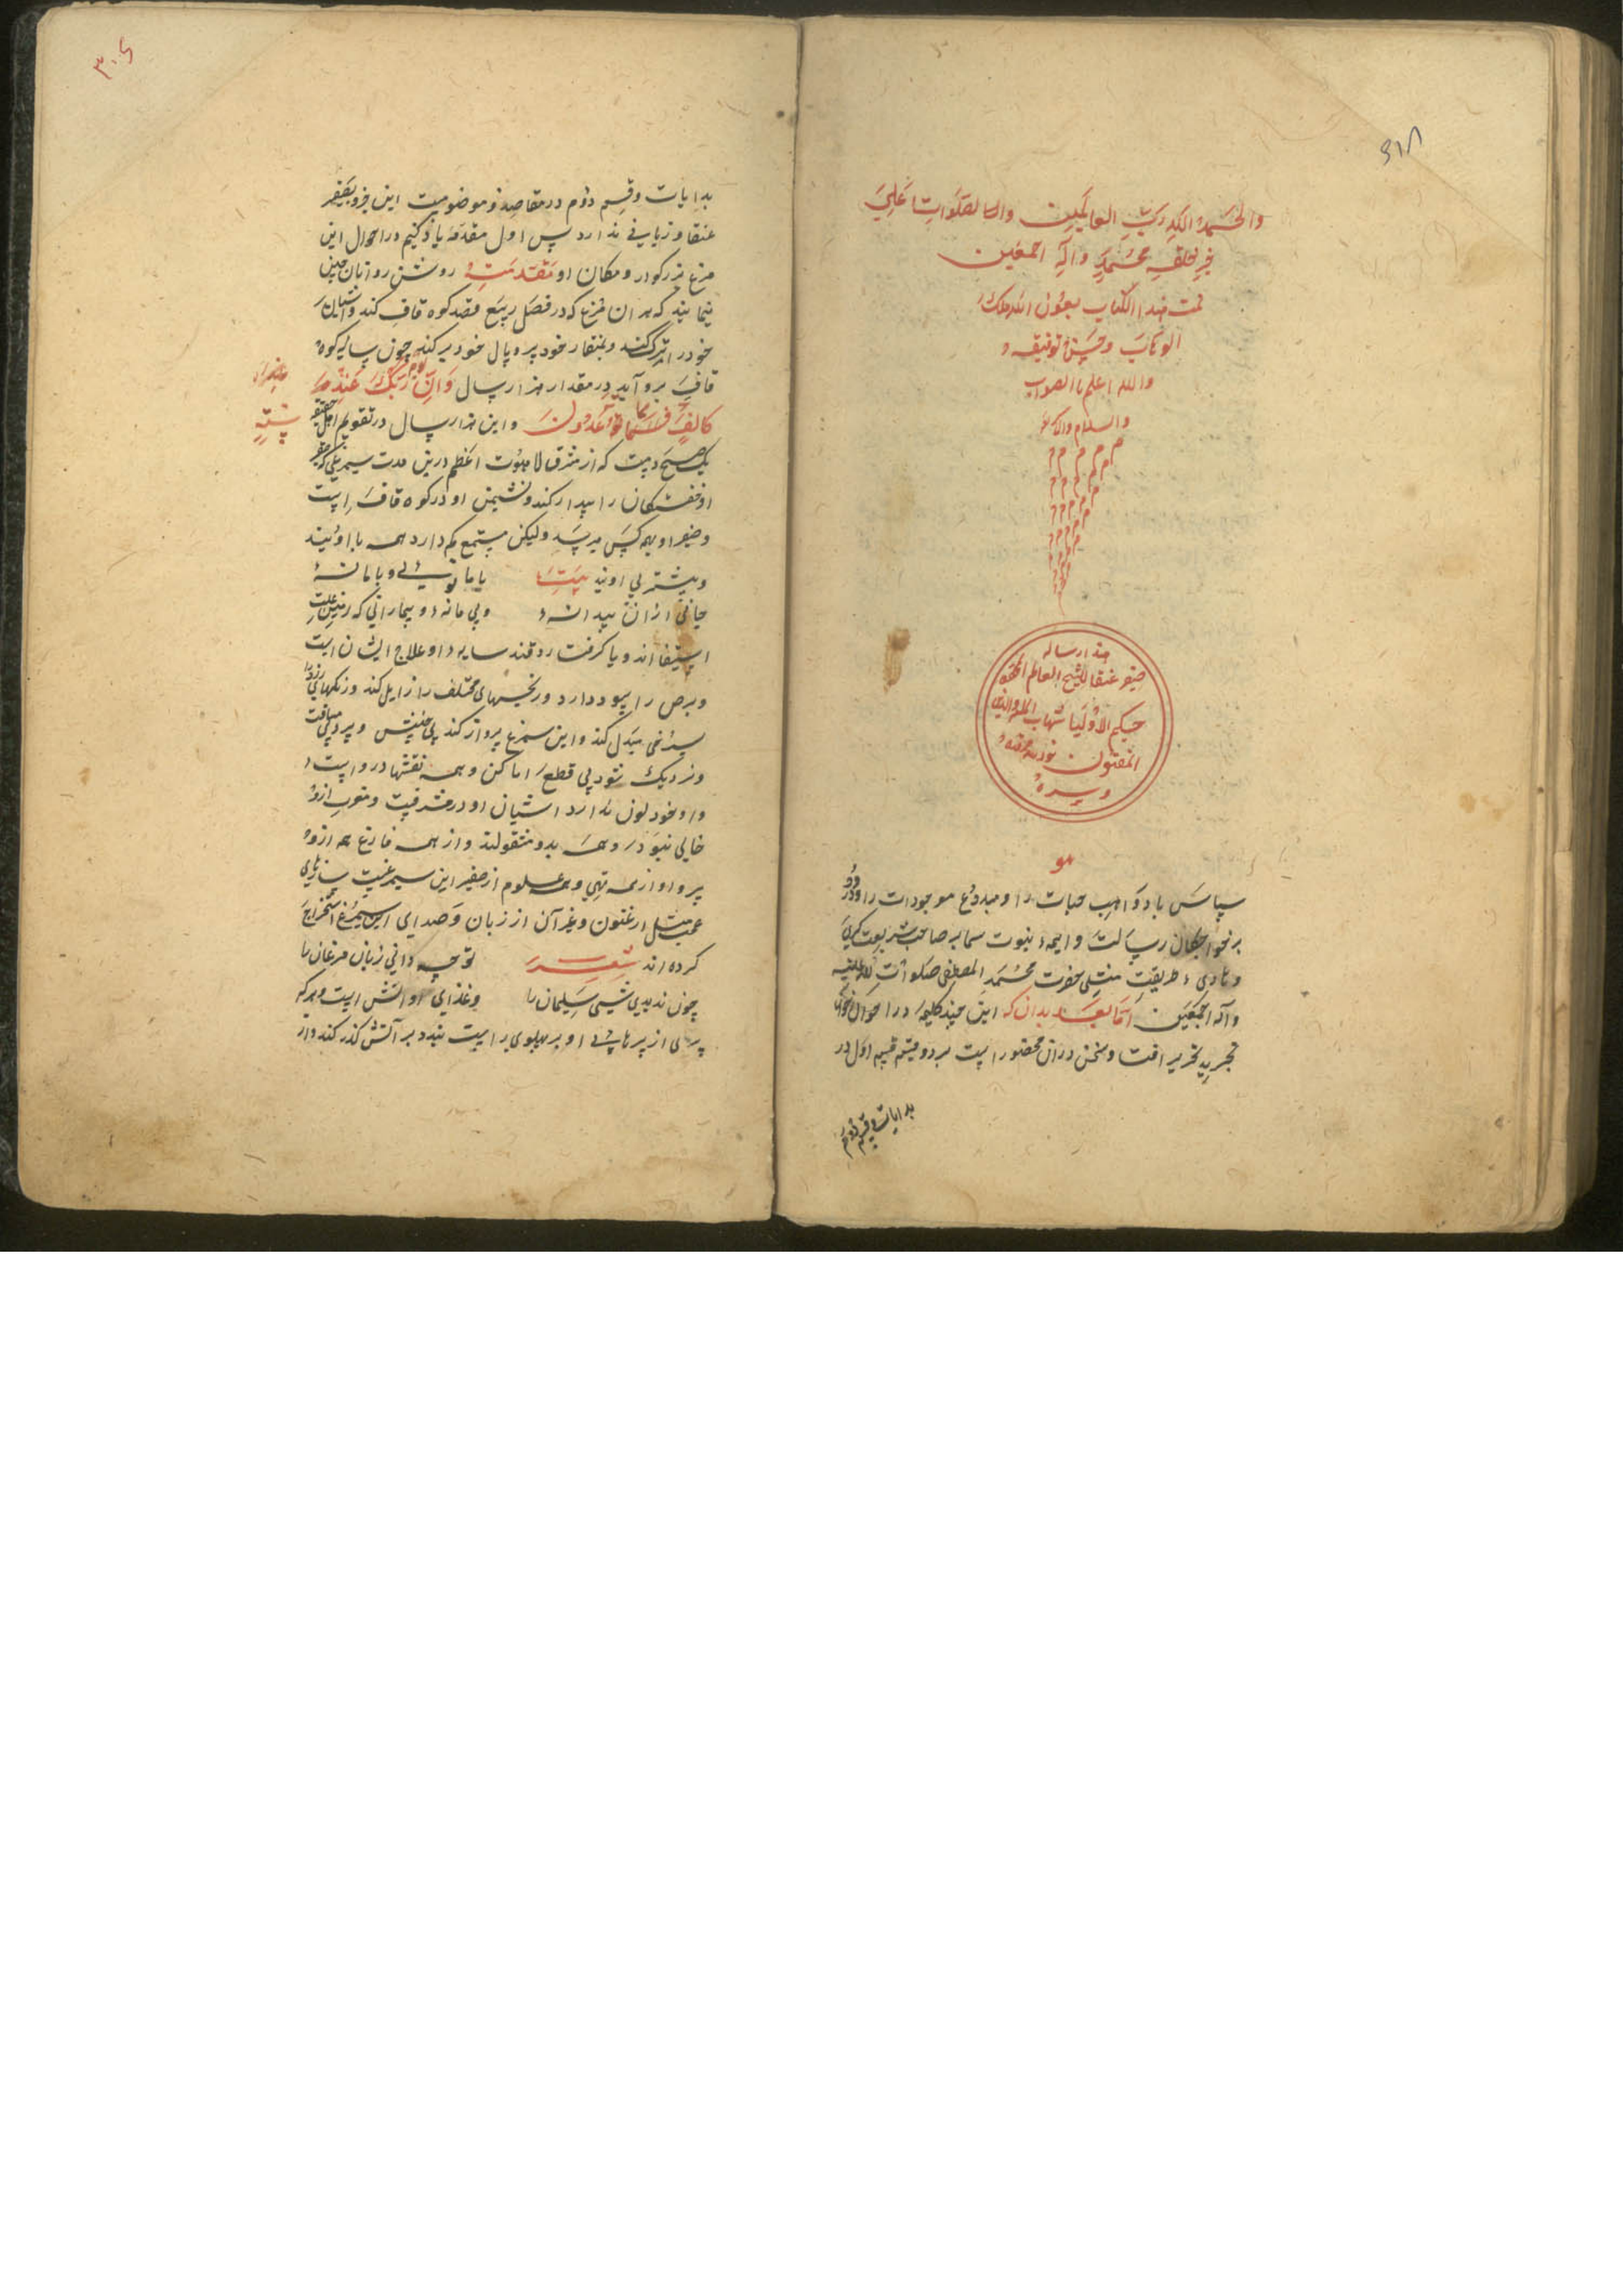 ٣١٨
والحمد لله رب العالمين والصلوات علی
خیر خلقه محمد وآله اجمعین
تمت هذا الکتاب بعون الله ملک
الوهاب وحسن توفیقه
والله اعلم بالصواب
والسلام والاکرام
م م م م
م م م
هذا رساله
صفیر عنقا للشیخ العالم
حکیم الاولیا شهاب
المقتول نور الله مرقده
هو
سپاس باد واهب حیات را و مبدع موجودات را و درود
بر خواجگان رسالت و ایمه نبوت سما بر صاحب شریعت کبری
و هادی طریقت مثلی حضرت محمد المصطفی صلوات الله علیه
وآله اجمعین اما بعد بدان که این چند کلیمه در احوال اخوان
تجرید تحریر افتاد و سخن دران محصور است بر دو قسم قسم اول در
بدایات و قسم دوم
٣٠٥
بدایات و قسم دوم در مقاصد و موضوعست این جزو بصفیر
عنقا و زیانی ندارد پس اول مقدمه یاد کنیم در احوال این
مرغ بزرکوار و مکان او مقدمه روشن روانان چنین
نمایند که هر ان مرغ که در فصل ربیع قصد کوه قاف کند و اشیان
خود را ترک کند و بمنقار خود پر و بال خود برکند چون سایه کوه
قاف برو آید در مقدار هزار سال وان یوما عند ربک
کالف سنة مما تعدون و این هزار سال در تقویم اهل حقیقه
یک صبحدمست که از مشرق لاهوت اعظم درین مدت سیمرغی که صفیر
او خفتکان را بیدار کند و نشیمن او در کوه قاف است
و صفیر او بهمه کس میرسد ولیکن مستمع کم دارد همه با اوئیند
و بیشتر بی اویند بیت با ما توئی و با ما نه
جانی ازان پیدا نه و بی ما نه و بیمارانی که رهین علت
استسقا اند و یا کرفتار دقند سایه او علاج ایشان است
و برص را سود دارد و رنجهای مختلف را زایل کند و رنکهای زرد را
بسرخی مبدل کند و این سیمرغ پرواز کند بی جنبش و بپرد بی مسافت
و نزدیک شود بی قطع اماکن و همه نقشها دروست
و او خود لون ندارد اشیان او در مشرقست و مغرب ازو
خالی نبود و همه بدو مشغولند و از همه فارغ همه ازو
پر و او از همه تهی و همه علوم از صفیر این سیمرغست سازهای
عجب مثل ارغنون و غیر آن از زبان و صدای این سیمرغ استخراج
کرده اند شعر تو چه دانی زبان مرغان را
چون ندیدی شبی سلیمان را و غذای او اتش است و هرکه
پری از پرهای او بر پهلوی راست بندد بر آتش کذر کند و از